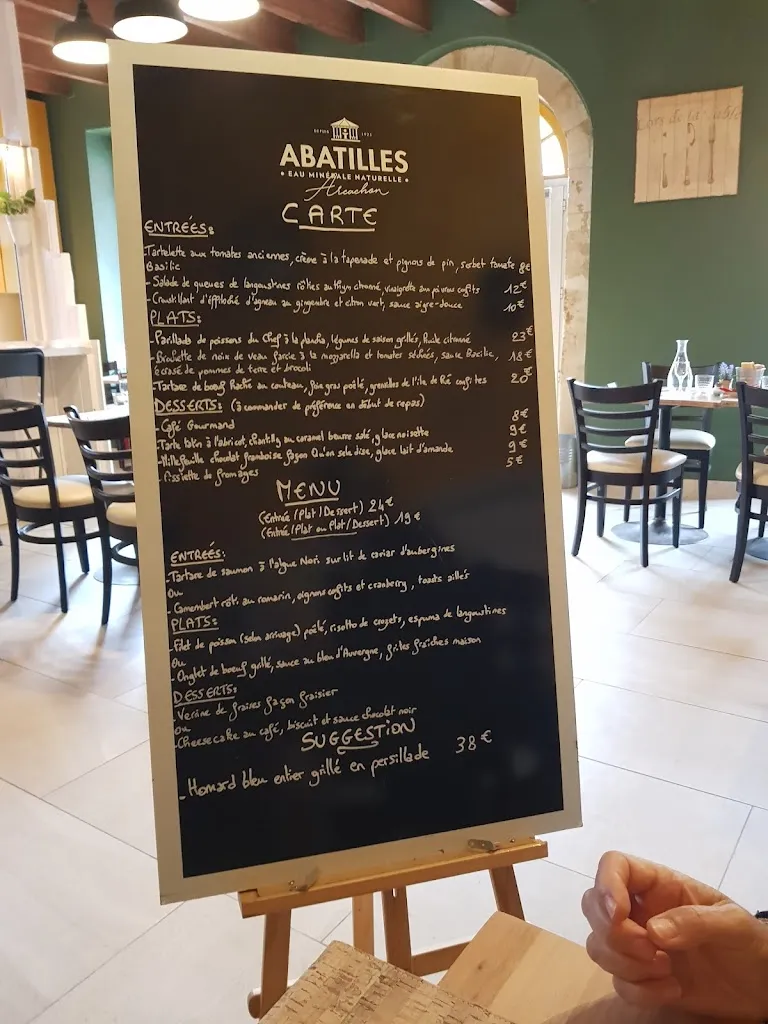 DEPUIS 1925
ABATILLES
• EAU MINÉRALE NATURELLE •
Arcachon
CARTE
ENTRÉES:
-Tartelette aux tomates anciennes, crème à la tapenade et pignons de pin, sorbet tomate 8€
Basilic
- Salade de queues de langoustines rôties au thym citronné, vinaigrette aux poivrons confits 12€
- Croustillant d'éffiloché d'agneau au gingembre et citron vert, sauce aigre-douce 10€
PLATS:
-Parillada de poissons du Chef à la plancha, légumes de saison grillés, huile citronné 23€
-Brochette de noix de veau farcie à la mozzarella et tomates séchées, sauce Basilic, 18€
écrasé de pommes de terre et brocoli
-Tartare de bœuf Haché au couteau, foie gras poêlé, grenailles de l'île de Ré confites 20€
DESSERTS: (à commander de préférence en début de repas)
- Café Gourmand 8€
-Tarte tatin à l'abricot, chantilly au caramel beurre salé, glace noisette 9€
-Millefeuille chocolat framboise façon Qu'on se le dise, glace lait d'amande 9€
- Assiette de fromages 5€
MENU
(Entrée/Plat/Dessert) 24€
(Entrée/Plat ou Plat/Dessert) 19€
ENTREÉS:
-Tartare de saumon à l'algue Nori sur lit de caviar d'aubergines
Ou
- Camembert rôti au romarin, oignons confits et cranberry, toasts aillés
PLATS:
-Filet de poisson (selon arrivage) poêlé, risotto de crozets, espuma de langoustines
Ou
- Onglet de boeuf grillé, sauce au bleu d'Auvergne, frites fraîches maison
DESSERTS:
- Verrine de fraises façon fraisier
ou
-Cheesecake au café, biscuit et sauce chocolat noir
SUGGESTION
- Homard bleu entier grillé en persillade 38€